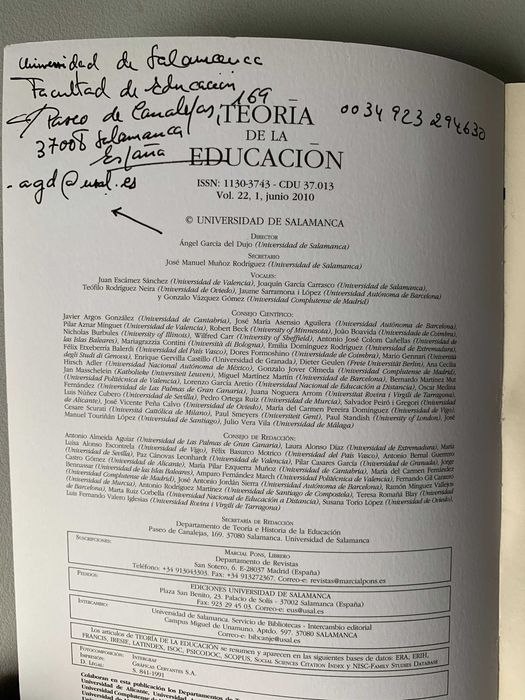 Universidad de Salamanca
Facultad de Educación
Paseo de Canalejas, 169
37008 Salamanca
España
0034 923 294630
- agd@usal.es
TEORÍA
DE LA
EDUCACIÓN
ISSN: 1130-3743 - CDU 37.013
Vol. 22, 1, junio 2010
© UNIVERSIDAD DE SALAMANCA
DIRECTOR
Ángel García del Dujo (Universidad de Salamanca)
SECRETARIO
José Manuel Muñoz Rodríguez (Universidad de Salamanca)
VOCALES:
Juan Escámez Sánchez (Universidad de Valencia), Joaquín García Carrasco (Universidad de Salamanca),
Teófilo Rodríguez Neira (Universidad de Oviedo), Jaume Sarramona i López (Universidad Autónoma de Barcelona)
y Gonzalo Vázquez Gómez (Universidad Complutense de Madrid)
CONSEJO CIENTÍFICO:
Javier Argos González (Universidad de Cantabria), José María Asensio Aguilera (Universidad Autónoma de Barcelona),
Pilar Aznar Minguet (Universidad de Valencia), Robert Beck (University of Minnesota), João Boavida (Universidade de Coimbra),
Nicholas Burbules (University of Illinois), Wilfred Carr (University of Sheffield), Antonio José Colom Cañellas (Universidad de
las Islas Baleares), Mariagrazia Contini (Università di Bologna), Emilia Domínguez Rodríguez (Universidad de Extremadura),
Félix Etxeberría Balerdi (Universidad del País Vasco), Dores Formosinho (Universidade de Coimbra), Mario Gennari (Università
degli Studi di Genova), Enrique Gervilla Castillo (Universidad de Granada), Dieter Geulen (Freie Universität Berlin), Ana Cecilia
Hirsch Adler (Universidad Nacional Autónoma de México), Gonzalo Jover Olmeda (Universidad Complutense de Madrid),
Jan Masschelein (Katholieke Universiteit Leuven), Miquel Martínez Martín (Universidad de Barcelona), Bernardo Martínez Mut
(Universidad Politécnica de Valencia), Lorenzo García Aretio (Universidad Nacional de Educación a Distancia), Oscar Medina
Fernández (Universidad de Las Palmas de Gran Canaria), Juana Noguera Arrom (Universitat Rovira i Virgili de Tarragona),
Luis Núñez Cubero (Universidad de Sevilla), Pedro Ortega Ruiz (Universidad de Murcia), Salvador Peiró i Gregori (Universidad
de Alicante), José Vicente Peña Calvo (Universidad de Oviedo), María del Carmen Pereira Domínguez (Universidad de Vigo),
Cesare Scurati (Università Cattolica di Milano), Paul Smeyers (Universiteit Gent), Paul Standish (University of London), José
Manuel Touriñán López (Universidad de Santiago), Julio Vera Vila (Universidad de Málaga)
CONSEJO DE REDACCIÓN:
Antonio Almeida Aguiar (Universidad de Las Palmas de Gran Canaria), Laura Alonso Díaz (Universidad de Extremadura), María
Luisa Alonso Escontrela (Universidad de Vigo), Félix Basurco Motrico (Universidad del País Vasco), Antonio Bernal Guerrero
(Universidad de Sevilla), Paz Cánovas Leonhardt (Universidad de Valencia), Pilar Casares García (Universidad de Granada), Jorge
Castro Gómez (Universidad de Alicante), María Pilar Ezquerra Muñoz (Universidad de Cantabria), María del Carmen Fernández
Bennassar (Universidad de las Islas Baleares), Amparo Fernández March (Universidad Politécnica de Valencia), Fernando Gil Cantero
(Universidad Complutense de Madrid), José Antonio Jordán Sierra (Universidad Autónoma de Barcelona), Ramón Mínguez Vallejos
(Universidad de Murcia), Antonio Rodríguez Martínez (Universidad de Santiago de Compostela), Teresa Romañá Blay (Universidad
de Barcelona), Marta Ruiz Corbella (Universidad Nacional de Educación a Distancia), Susana Torío López (Universidad de Oviedo),
Luis Fernando Valero Iglesias (Universitat Rovira i Virgili de Tarragona)
SECRETARÍA DE REDACCIÓN
Departamento de Teoría e Historia de la Educación
Paseo de Canalejas, 169. 37080 Salamanca. Universidad de Salamanca
SUSCRIPCIONES:
MARCIAL PONS, LIBRERO
Departamento de Revistas
San Sotero, 6. E-28037 Madrid (España)
Teléfono: +34 913043303. Fax: +34 913272367. Correo-e: revistas@marcialpons.es
PEDIDOS:
EDICIONES UNIVERSIDAD DE SALAMANCA
Plaza San Benito, 23. Palacio de Solís - 37002 Salamanca (España)
Fax: 923 29 45 03. Correo-e: eus@usal.es
INTERCAMBIO:
Universidad de Salamanca. Servicio de Bibliotecas - Intercambio editorial
Campus Miguel de Unamuno. Aptdo. 597. 37080 SALAMANCA
Correo-e: bibcanje@usal.es
Los artículos de TEORÍA DE LA EDUCACIÓN se resumen y aparecen en las siguientes bases de datos: ERA, ERIH,
FRANCIS, IRESIE, LATINDEX, ISOC, PSICODOC, SCOPUS, SOCIAL SCIENCES CITATION INDEX y NISC-FAMILY STUDIES DATABASE
FOTOCOMPOSICIÓN: INTERGRAF
IMPRESIÓN: GRÁFICAS CERVANTES S.A.
D. LEGAL: S. 841-1991
Colaboran en esta edición los Departamentos de
Universidad de Alicante, Universidad